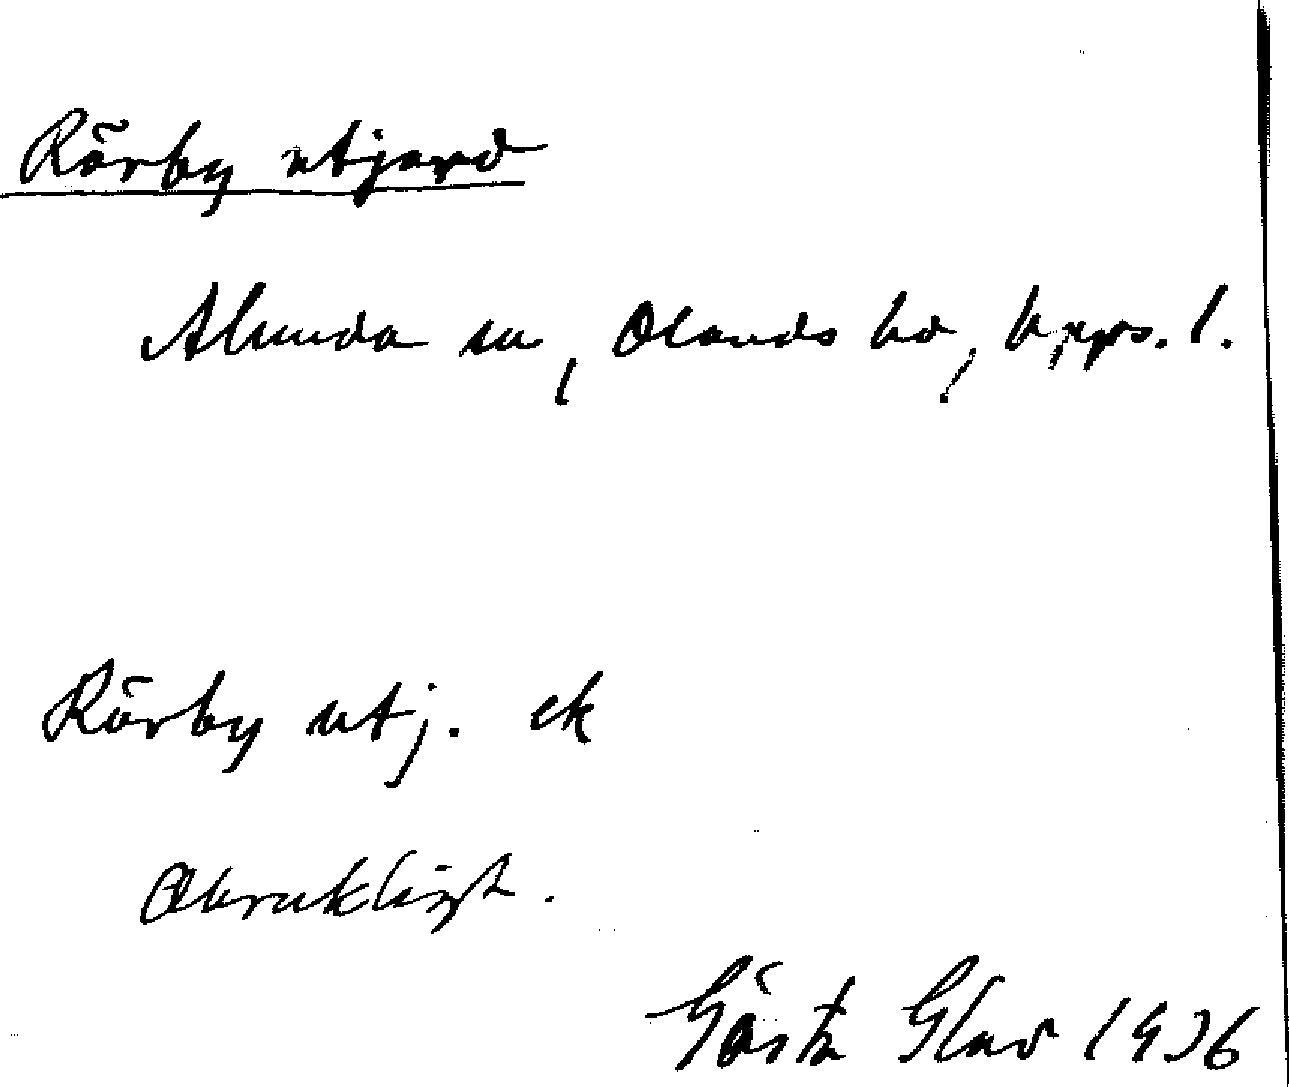 Rörby utjord
Alunda sn, Olands hd, Upps. l.
Rörby utj. ek
Obrukligt.
Gösta Glad 1936